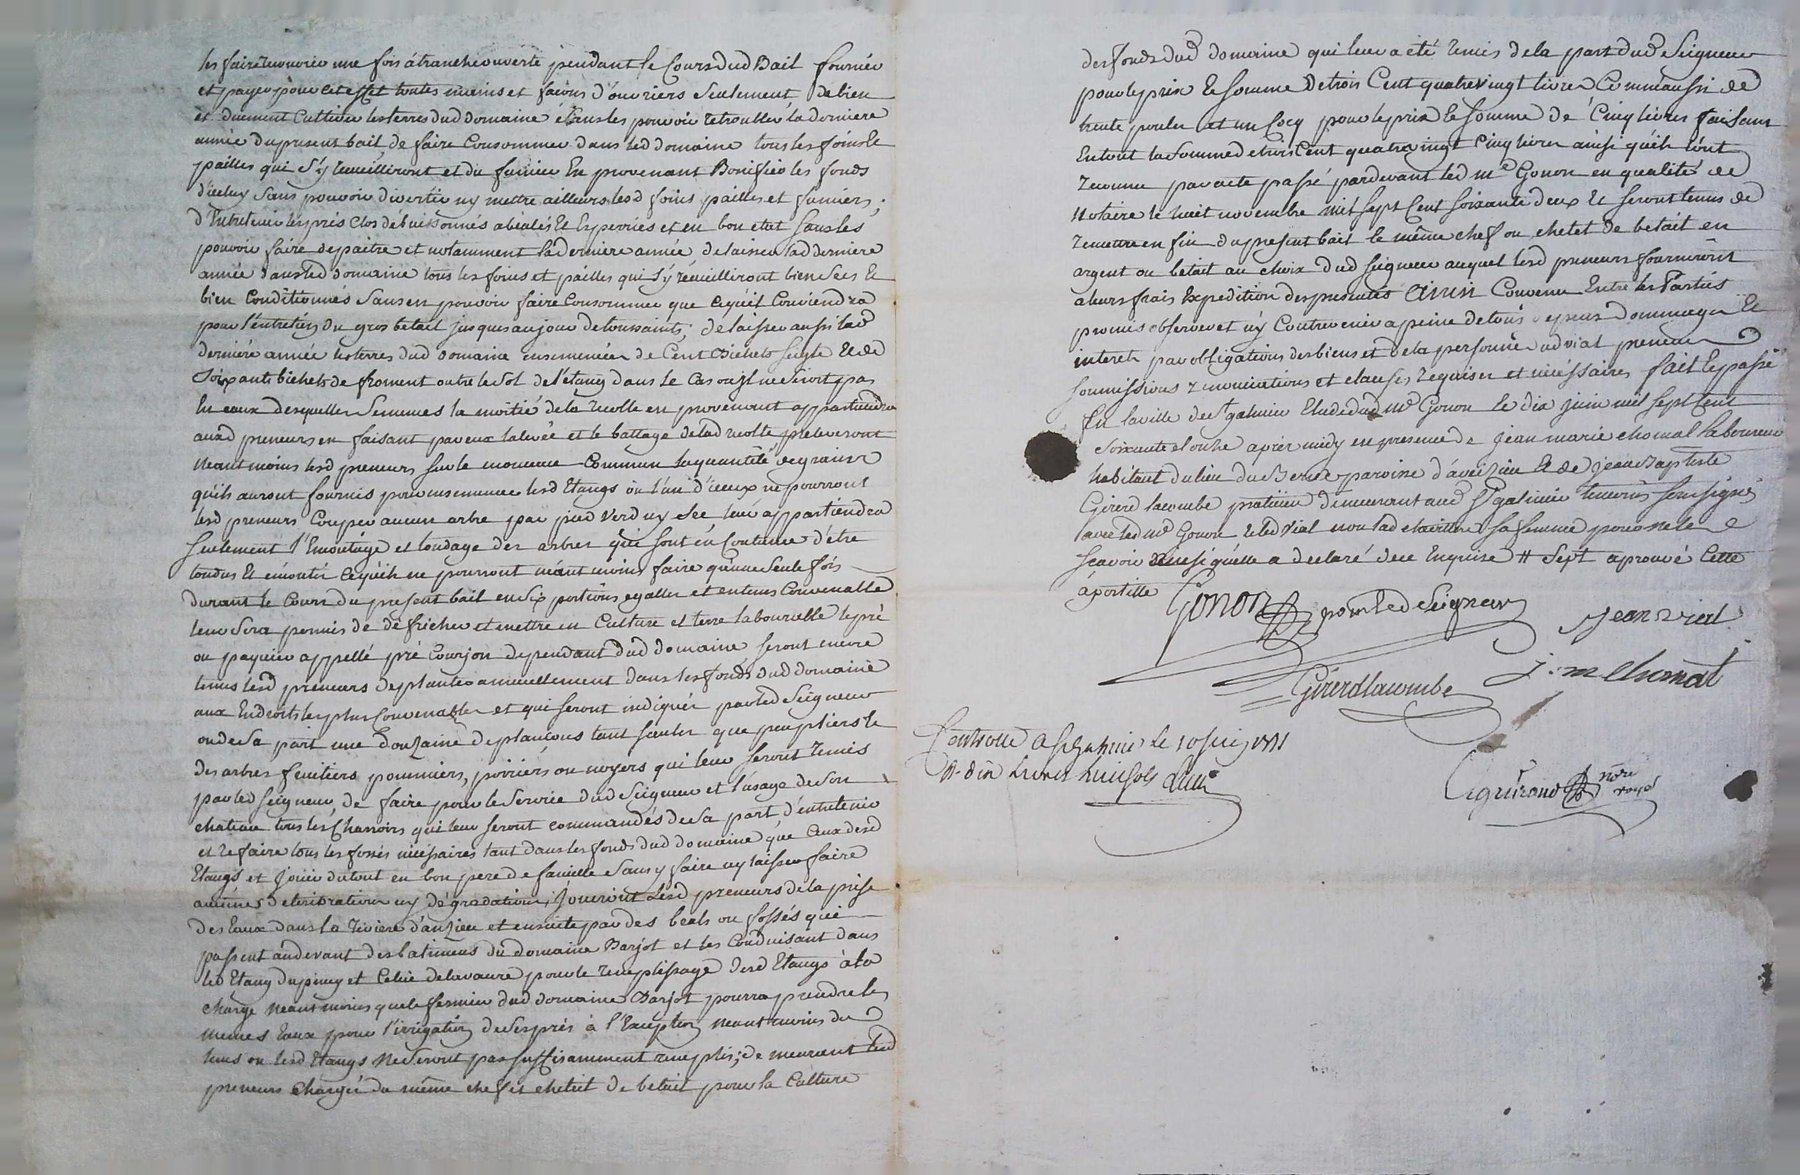 les faire recouvrir une fois à tranche ouverte pendant le Cours dud Bail fournir
et payer pour cet effet toutes mains et façons d'ouvriers Seulement de bien
et duement Cultiver les terres dud domaine sans les pouvoir retroubler la derniere
année du present bail de faire Consommer dans led domaine tous les foins et
pailles qui S'y recueilliront et du fumier En provenant Bonifier les fonds
d'iceluy Sans pouvoir divertir ny mettre ailleurs lesd foins pailles et fumiers;
d'Entretenir les prés Clos de buissonnés abialés Et Esperriés et en bon etat Sans les
pouvoir faire depaitre et notamment la derniere année de laisser lad derniere
année dans led domaine tous les foins et pailles qui S'y recuilliront bien Secs Et
bien Conditionnés Sans en pouvoir faire Consommer que Ce qu'il Conviendra
pour l'entretien du gros betail jusques au jour de toussaints; de laisser aussi lad
derniere année les terres dud domaine ensemencées de Cent Bichets Seigle et de
Soixante bichets de froment outre le Sol de l'étang dans le Cas ou il ne Seroit pas
En eaux desquelles Semences la moitié de la recolte en provenant appartiendra
auxd preneurs en faisant par eux la levée et le battage de lad recolte preleveront
Neantmoins lesd preneurs Sur le monceau Commun la quantité de grains
qu'ils auront fournis pour ensemencer lesd Etangs ou l'un d'iceux ne pourront
lesd preneurs Couper aucun arbre par pied Verd ny Sec leur appartiendra
Seulement l'Emoutage et tondage des arbres qui sont en Coutume d'être
tondus Et émoutés Ce qu'ils ne pourront néant moins faire qu'une Seule fois
durant le Cours du present bail en Six portions egalles et en tems Convenable
leur Sera permis de défricher et mettre en Culture et terre labourable le pré
ou paquier appellé pré Courjon dependant dud domaine Seront encore
tenus lesd preneurs de planter annuellement dans les fonds dud domaine
aux Endroits les plus Convenables et qui Seront indiqués par led Seigneur
ou de Sa part une Douzaine de plançons tant Saules que peupliers Et
des arbres fruitiers pommiers, poiriers ou noyers qui leur Seront remis
par led Seigneur, de faire pour le Service dud Seigneur et l'usage de Son
chateau tous les Charrois qui leur Seront commandés de Sa part d'entretenir
et refaire tous les fossés nécéssaires tant dans les fonds dud domaine que Ceux desd
Etangs et Jouir du tout en bon pere de famille Sans y faire ny laisser faire
aucunes deteriorations ny dégradations; Jouiront lesd preneurs de la prise
des Eaux dans la riviere d'anzieu et ensuite par des beals ou fossés qui
passent au devant des batimens du domaine Barjot et les Conduisant dans
led Etang du piney et Celui de lavaure pour le remplissage desd Etangs à la
charge Neantmoins que le fermier dud domaine Barjot pourra prendre les
memes Eaux pour l'irrigation de Ses prés à l'Exception Neant moins du
tems ou lesd Etangs Ne Seront pas suffisamment remplis; demeurent lesd
preneurs Chargés du même chef et chetail de betail pour la Culture
des fonds dud domaine qui leur a été remis de la part dud Seigneur
pour le prix Et Somme De trois Cent quatre vingt livres Comme aussi de
trente poules et un Cocq pour le prix Et Somme de Cinq livres faisant
En tout la Somme de trois Cent quatre vingt Cinq livres ainsi qu'ils l'ont
reconnu par acte passé pardevant led me Gonon en qualité de
Notaire le huit novembre mil Sept Cent Soixante deux Et Seront tenus de
remettre en fin du present bail le même chef ou chetel de betail en
argent ou betail au choix dud Seigneur auquel lesd preneurs fourniront
a leurs frais Expedition des presentes Ainsi Convenu Entre les Parties
promis observer et n'y Contrevenir a peine de tous depens dommages Et
interets par obligations des biens et de la personne dud vial preneur
Soumissions renonciations et clauses requises et nécéssaires fait Et passé
En la ville de St galmier Etude dud me Gonon le dix juin mil Sept Cent
Soixante et onze après midy en presence de Jean marie chomat laboureur
habitant du lieu du Bernes paroisse d'aveizieu Et de Jean Baptiste
Girerd lacombe praticien demeurant aud St galmier temoins Soussignés
avec led me Gonon Et led Vial non lad Sa femme pour ne le
Scavoir de ce a declaré de ce Enquise # Sept aprouvé Cette
apostille
Gonon pour led Seigneur
Jean Vial
J. m Chomat
Girerd lacombe
Controllé a St galmier le 10 juin 1771
R. dix livres huit sols
Gigurand nore
royal